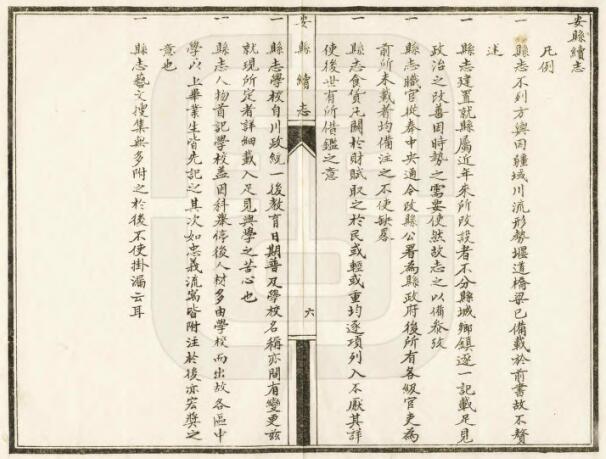 安縣續志
凡例
一 縣志不列方輿因疆域川流形勢堰道橋梁已備載於前書故不贅
述
一 縣志建置就縣屬近年來所改設者不分縣城鄉鎮逐一記載足見
政治之改善因時勢之需要使然故志之以備參攷
一 縣志職官從奉中央通令改縣公署為縣政府後所有各級官吏為
前所未載者均備注之不使缺畧
一 縣志食貨凡關於財賦取之於民或輕或重均逐項列入不厭其詳
使後世有所借鑑之意
安縣續志
六
一 縣志學校自川政統一後教育日期普及學校名稱亦間有變更茲
就現所定者詳細載入足見興學之苦心也
一 縣志人物首記學校蓋因科舉停後人材多由學校而出故各區中
學以上畢業生皆先記之其次如忠義流寓皆附注於後亦宏獎之
意也
一 縣志藝文搜集無多附之於後不使掛漏云耳